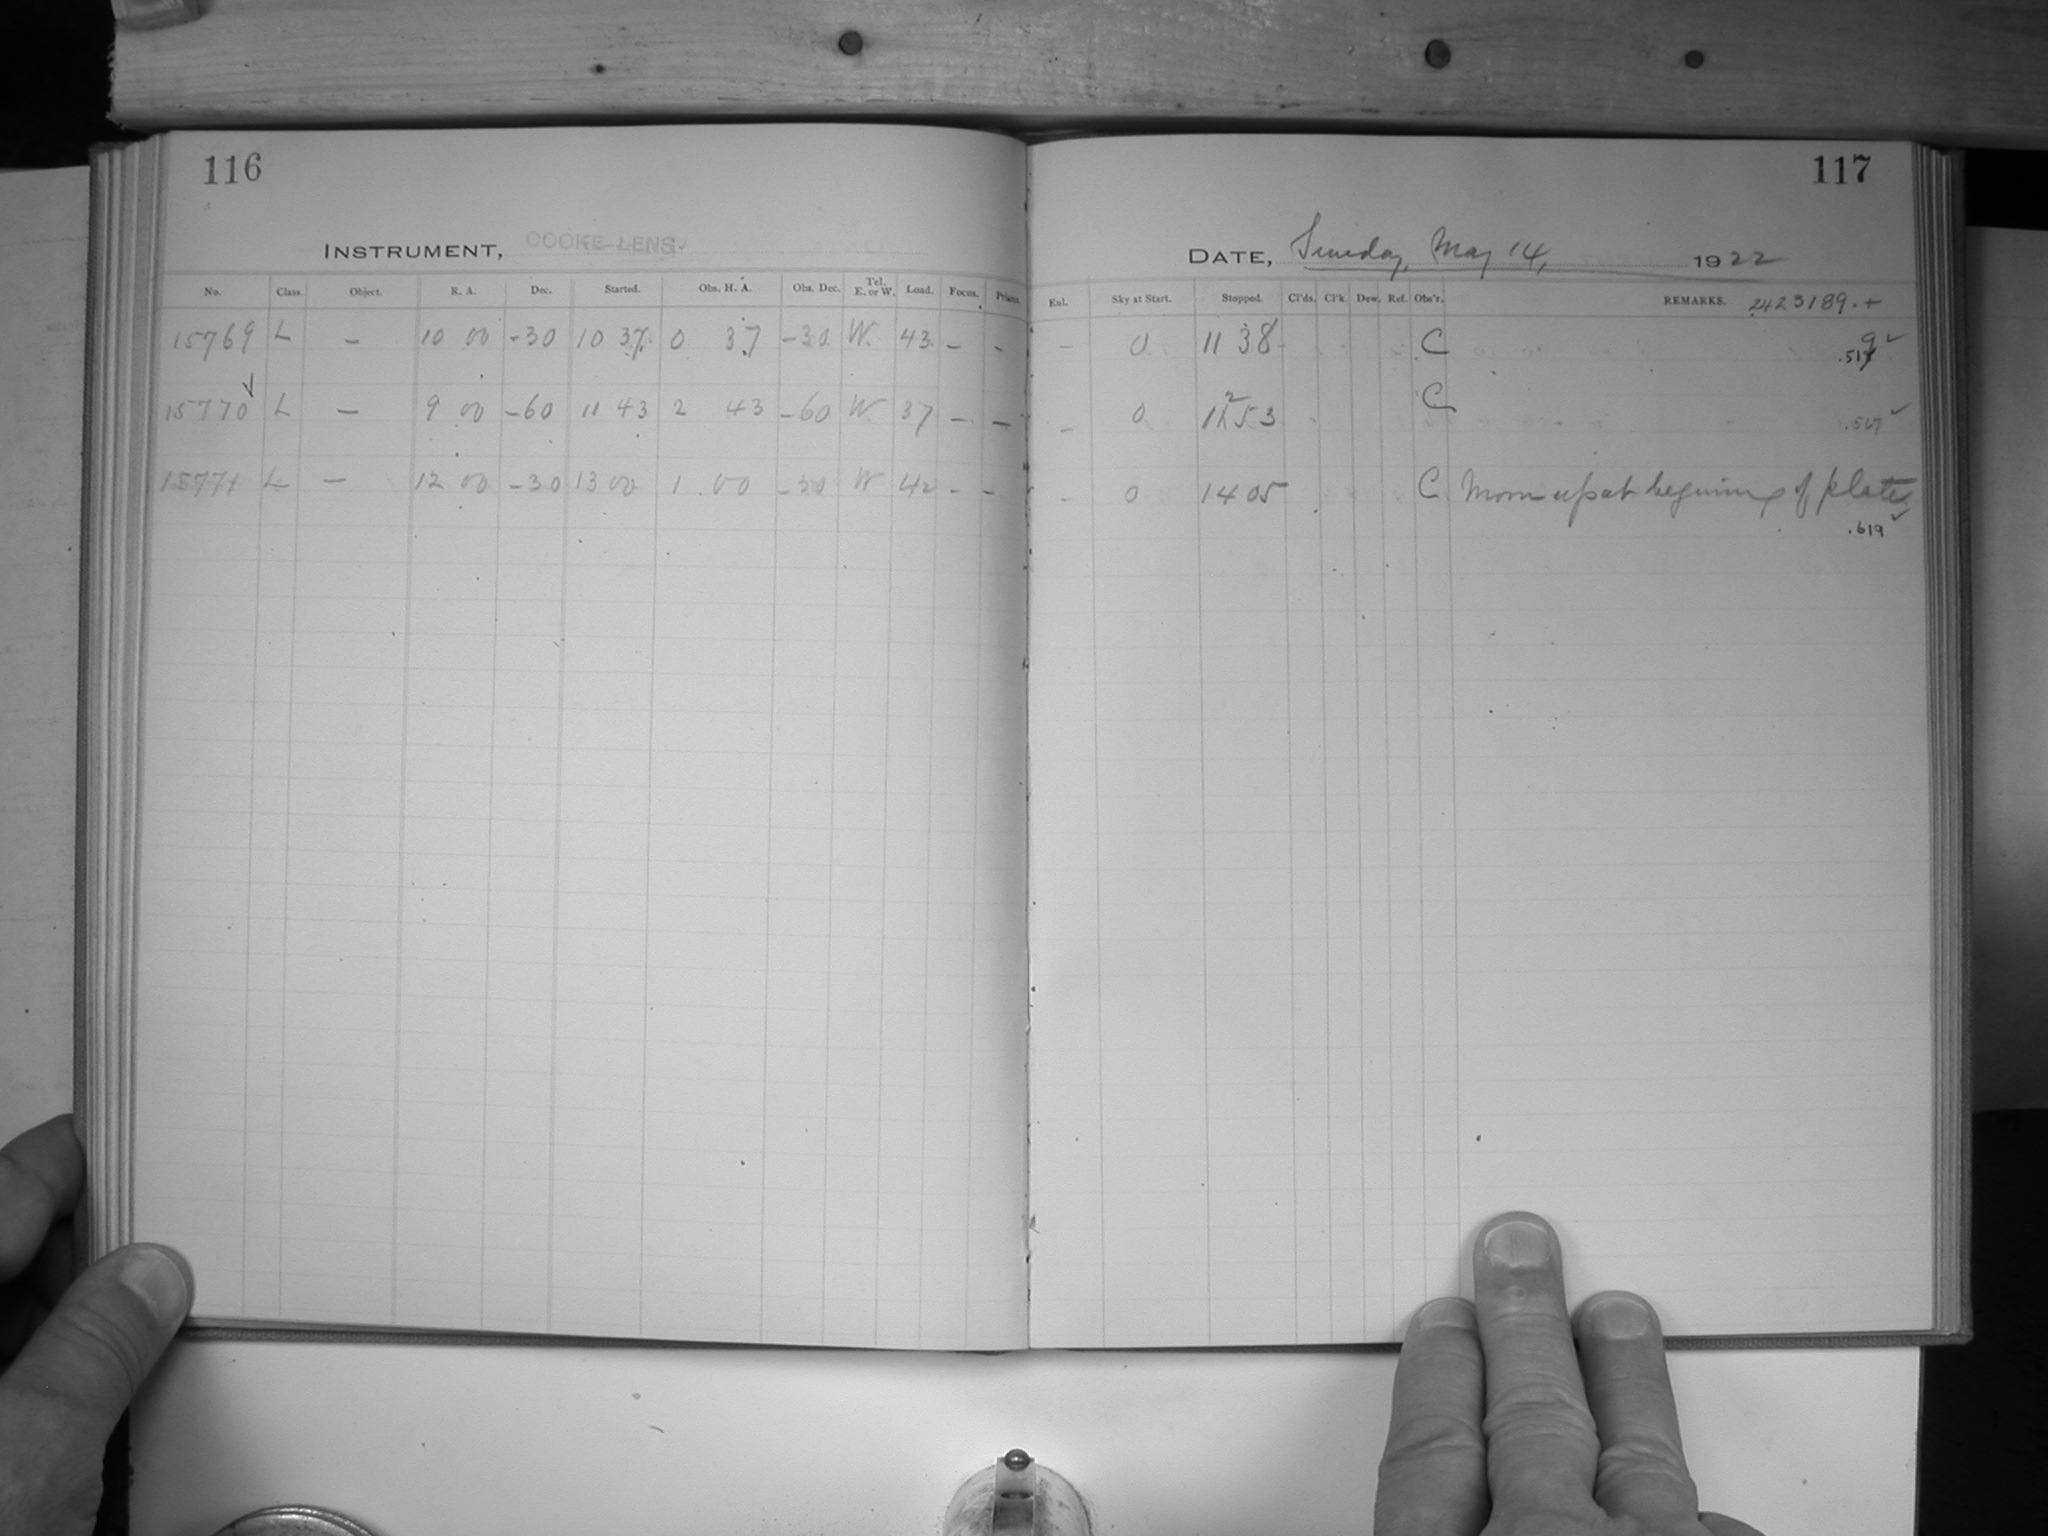 116
INSTRUMENT, COOKE LENS
No. Class. Object. R. A. Dec. Started. Obs. H. A. Obs. Dec. Tel. E. or W. Load. Focus. Prisms.
15769 L – 10 00 -30 10 37 0 37 -30 W 43 - -
15770 L – 9 00 -60 11 43 2 43 -60 W 37 - -
15771 L – 12 00 -30 13 00 1 00 -30 W 42 - -
117
DATE, Sunday, May 14, 1922
Enl. Sky at Start. Stopped. Cl'ds. Cl'k. Dew. Ref. Obs'r. REMARKS. 2423189.+
- 0 11 38 C
- 0 12 53 C
- 0 14 05 C Moon up at begining of plate
.619